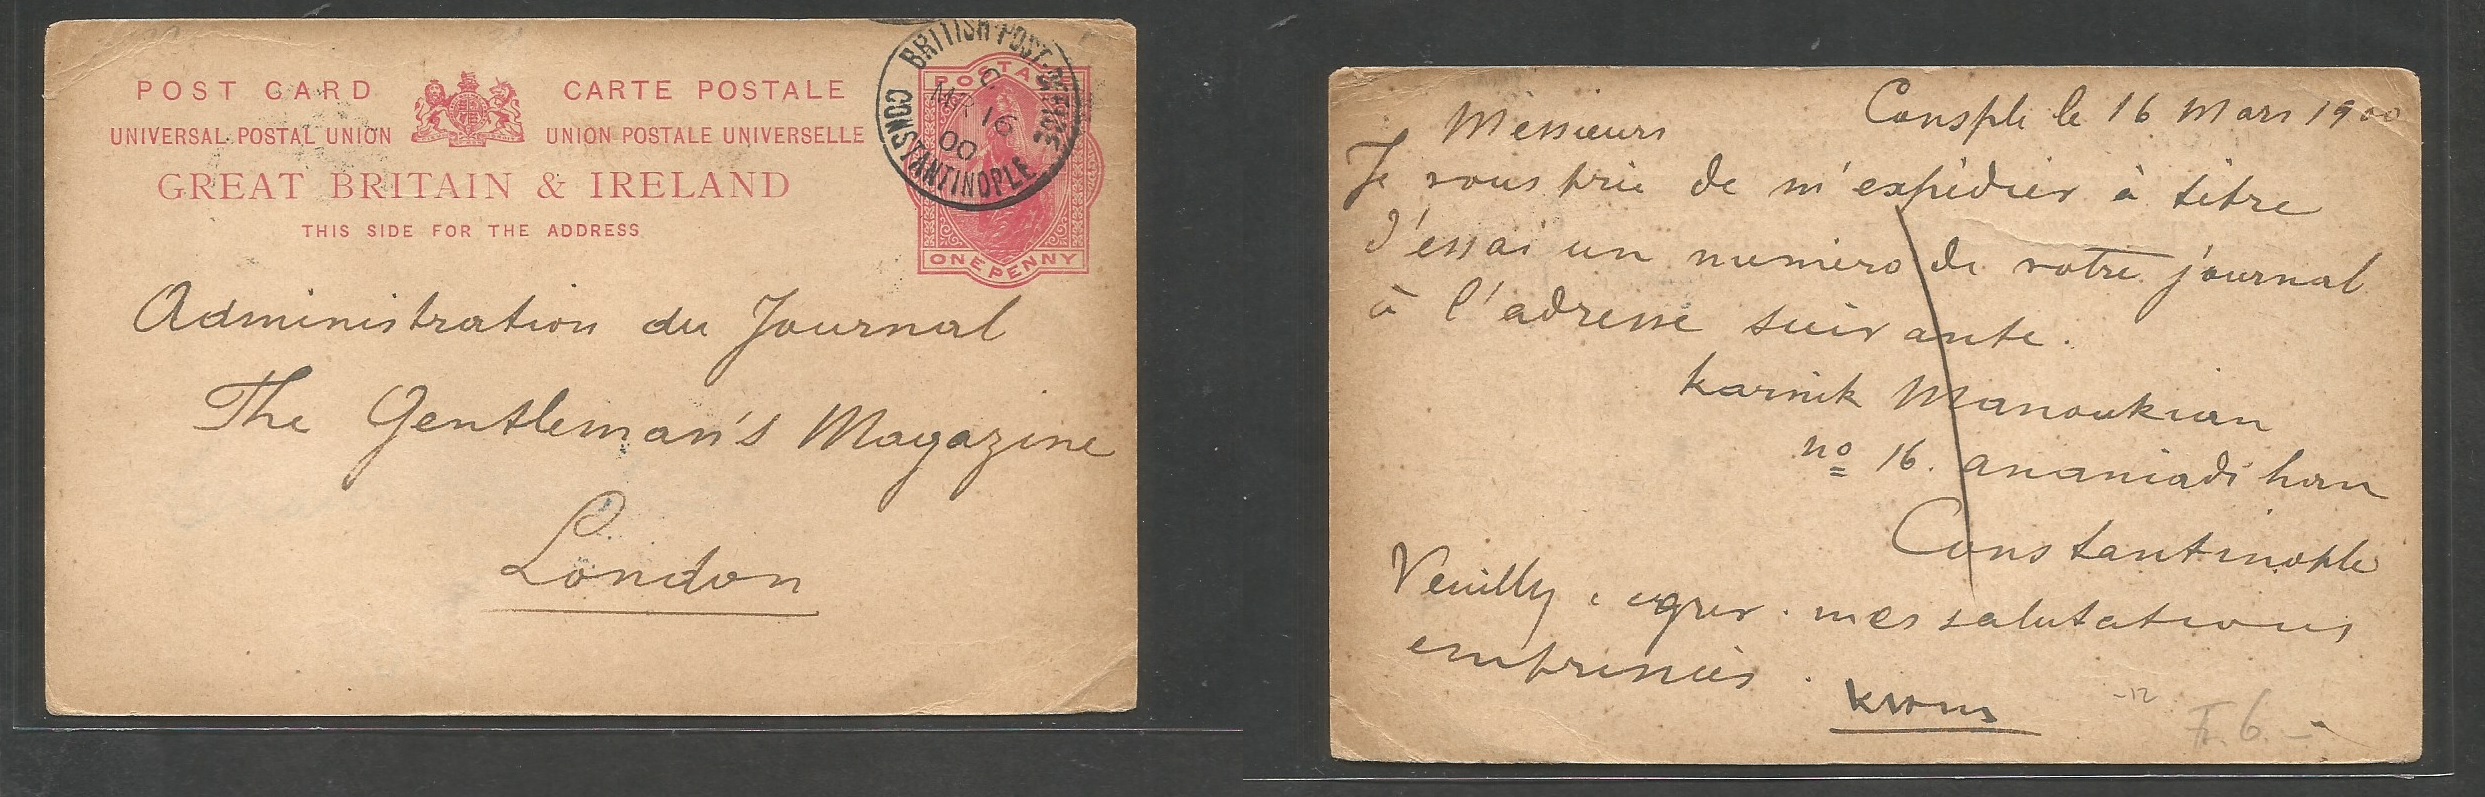 POST CARD
CARTE POSTALE
UNIVERSAL POSTAL UNION
UNION POSTALE UNIVERSELLE
GREAT BRITAIN & IRELAND
THIS SIDE FOR THE ADDRESS
BRITISH POST OFFICE
C
MR 16
00
CONSTANTINOPLE
POSTAGE
ONE PENNY
Administration du Journal
The Gentleman's Magazine
London
Consple le 16 Mars 1900
Messieurs
Je vous prie de m'expédier à titre
d'essai un numéro de votre journal
à l'adresse suivante.
Karnik Manoukian
no 16. ananiadi han
Constantinople
Veuillez agreer mes salutations
empressées.
-12
6.-